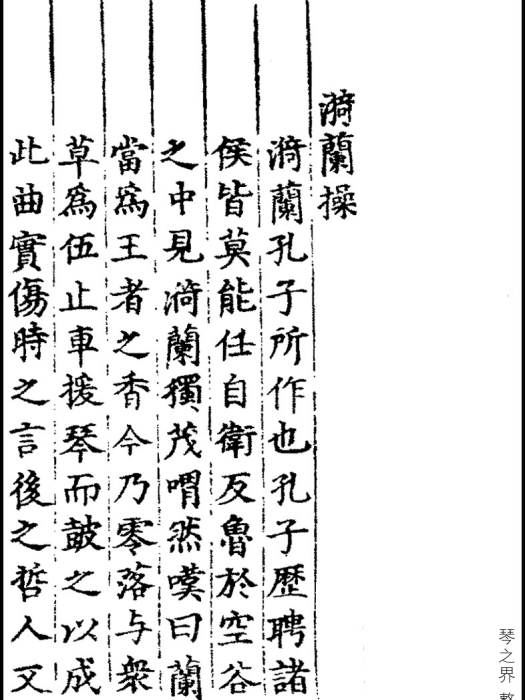 漪蘭操
漪蘭孔子所作也孔子歷聘諸
侯皆莫能任自衛反魯於空谷
之中見漪蘭獨茂喟然嘆曰蘭
當爲王者之香今乃零落与衆
草爲伍止車援琴而皷之以成
此曲實傷時之言後之哲人又
琴之界